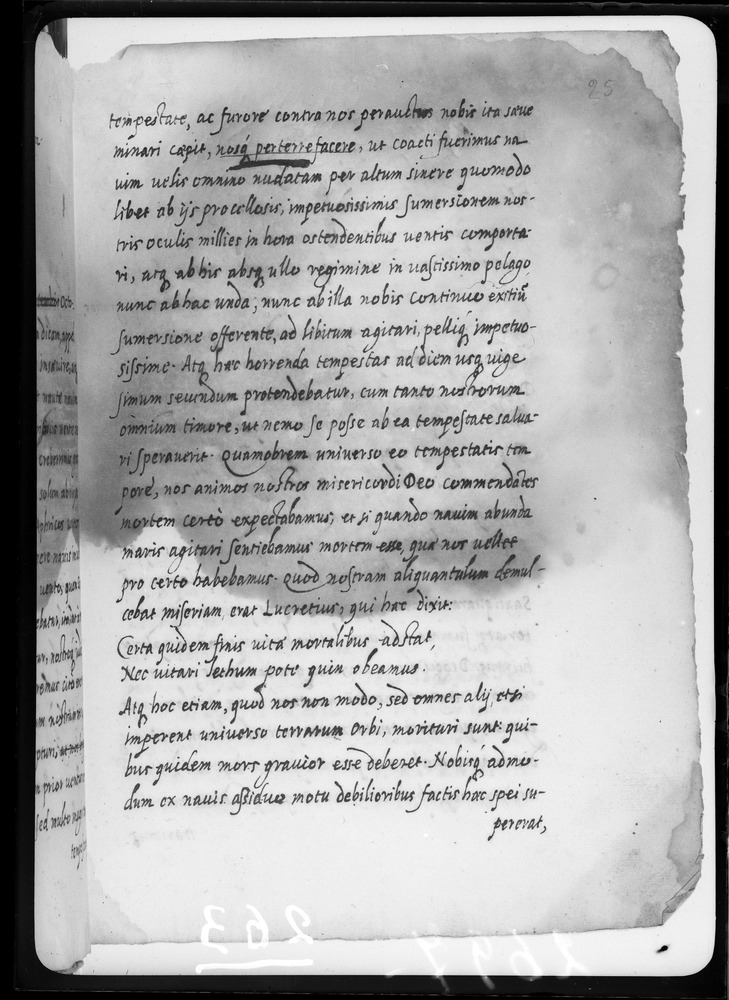 25
tempestate, ac furore contra nos perauctus nobis ita sæue
minari cæpit, nosq́ perterrefacere, ut coacti fuerimus na
uim uelis omnino nudatam per altum sinere quomodo
libet ab ijs procellosis, impetuosissimis sumersionem nos-
tris oculis millies in hora ostendentibus uentis comporta-
ri, atq́ ab his absq́ ullo regimine in uastissimo pelago,
nunc ab hac unda, nunc ab illa nobis continuo exitiũ
sumersione offerente, ad libitum agitari, pelliq́ impetuo-
sissime. Atq́ hæc horrenda tempestas ad diem usq́ uige
simum secundum protendebatur, cum tanto nostrorum
omnium timore, ut nemo se posse ab ea tempestate salua-
ri sperauerit. Quamobrem uniuerso eo tempestatis tem
pore, nos animos nostros misericordi Deo commendãtes
mortem certò expectabamus; et si quando nauim abunda
maris agitari sentiebamus mortem esse, quæ nos uellet
pro certo habebamus. Quod nostram aliquantulum demul-
cebat miseriam, erat Lucretius, qui hæc dixit:
Certa quidem finis uitæ mortalibus adstat,
Nec uitari lethum pote quin obeamus.
Atq́ hoc etiam, quod nos non modo, sed omnes alij, etsi
imperent uniuerso terrarum orbi, morituri sunt: qui-
bus quidem mors grauior esse deberet. Nobisq́ admo-
dum ex nauis assiduo motu debilioribus factis hæc spei su-
pererat,
263
2697